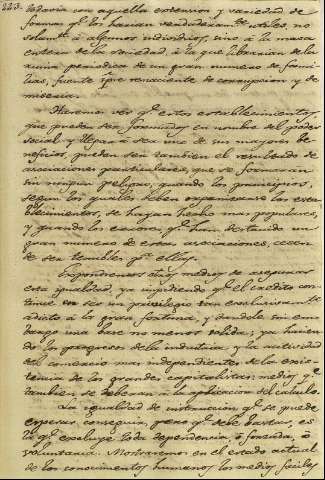 223.
todavia con aquella extension y variedad de
formas qe. los harian verdaderamte. utiles, no
solamte. á algunos individuos, sino á la masa
entera de la sociedad, á la que librarian de la
ruina periodica de un gran numero de fami-
lias, fuente spre. renaciente de corrupcion y de
miseria.
Haremos ver qe. estos establecimientos,
que pueden ser formados en nombre del poder
social y llegar á ser uno de sus mayores be-
neficios, pueden ser tambien el resultado de
asociaciones particulares, que se formarán
sin ningun peligro, quando los principios,
segun los quales deben organizarse los esta-
blecimientos, se hayan hecho mas populares,
y quando los errores, qe. han destruido un
gran numero de estas asociaciones, cesen
de ser temibles pa. ellas.
Expondremos otros medios de asegurar
esta igualdad, ya impidiendo qe. el credito con-
tinue en ser un privilegio tan exclusivamte.
adicto á la gran fortuna, y dandole sin em-
bargo una base no menos solida; ya hacien-
do los progresos de la industria, y la actividad
del comercio mas independientes de la exis-
tencia de los grandes capitalistas; medios qe.
tambien se deberán á la aplicacion del calculo.
La igualdad de instruccion qe. se puede
esperar conseguir, pero qe. debe bastar, es
la qe. excluye toda dependencia, ó forzada, ó
voluntaria. Mostraremos en el estado actual
de los conocimientos humanos los medios faciles